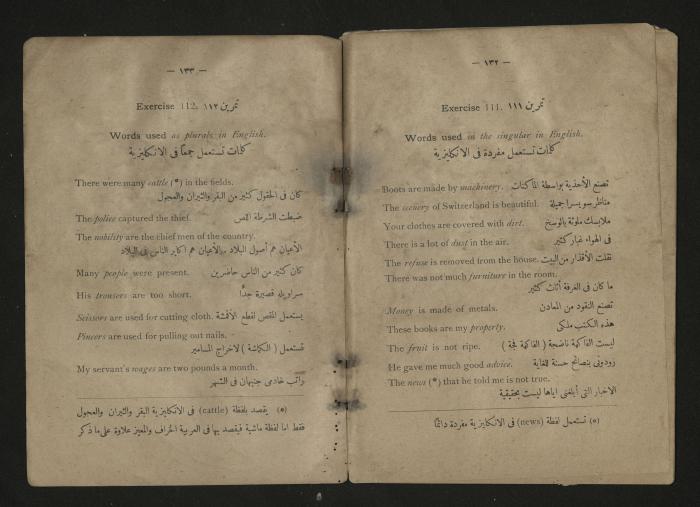 — ١٣٢ —
Exercise 111. تمرين ١١١
Words used in the singular in English.
كلمات تستعمل مفردة فى الانكليزية
Boots are made by machinery. تصنع الأحذية بواسطة الماكنات
The scenery of Switzerland is beautiful. مناظر سويسرا جميلة
Your clothes are covered with dirt. ملابسك ملوثة بالوسخ
There is a lot of dust in the air. فى الهواء غبار كثير
The refuse is removed from the house. نقلت الأقذار من البيت
There was not much furniture in the room.
ما كان فى الغرفة أثاث كثير
Money is made of metals. تصنع النقود من المعادن
These books are my property. هذه الكتب ملكى
The fruit is not ripe. ليست الفاكهة ناضجة ( الفاكهة فجة )
He gave me much good advice. زودونى بنصائح حسنة للغاية
The news (*) that he told me is not true.
الاخبار التى أبلغنى اياها ليست بحقيقية
(*) تستعمل لفظة (news) فى الانكليزية مفردة دائمًا
— ١٣٣ —
Exercise 112. تمرين ١١٢
Words used as plurals in English.
كلمات تستعمل جمعًا فى الانكليزية
There were many cattle (*) in the fields.
كان فى الحقول كثير من البقر والثيران والعجول
The police captured the thief. ضبطت الشرطة اللص
The nobility are the chief men of the country.
الأعيان هم أصول البلاد ــ الأعيان هم اكابر الناس فى البلاد
Many people were present. كان كثير من الناس حاضرين
His trousers are too short. سراويله قصيرة جدًّا
Scissors are used for cutting cloth. يستعمل المقص لقطع الأقمشة
Pincers are used for pulling out nails.
تستعمل ( الكماشة ) لاخراج المسامير
My servant's wages are two pounds a month.
راتب خادمى جنيهان فى الشهر
(*) يقصد بلفظة (cattle) فى الانكليزية البقر والثيران والعجول
فقط اما لفظة ماشية فيقصد بها فى العربية الخراف والمعيز علاوة على ما ذكر